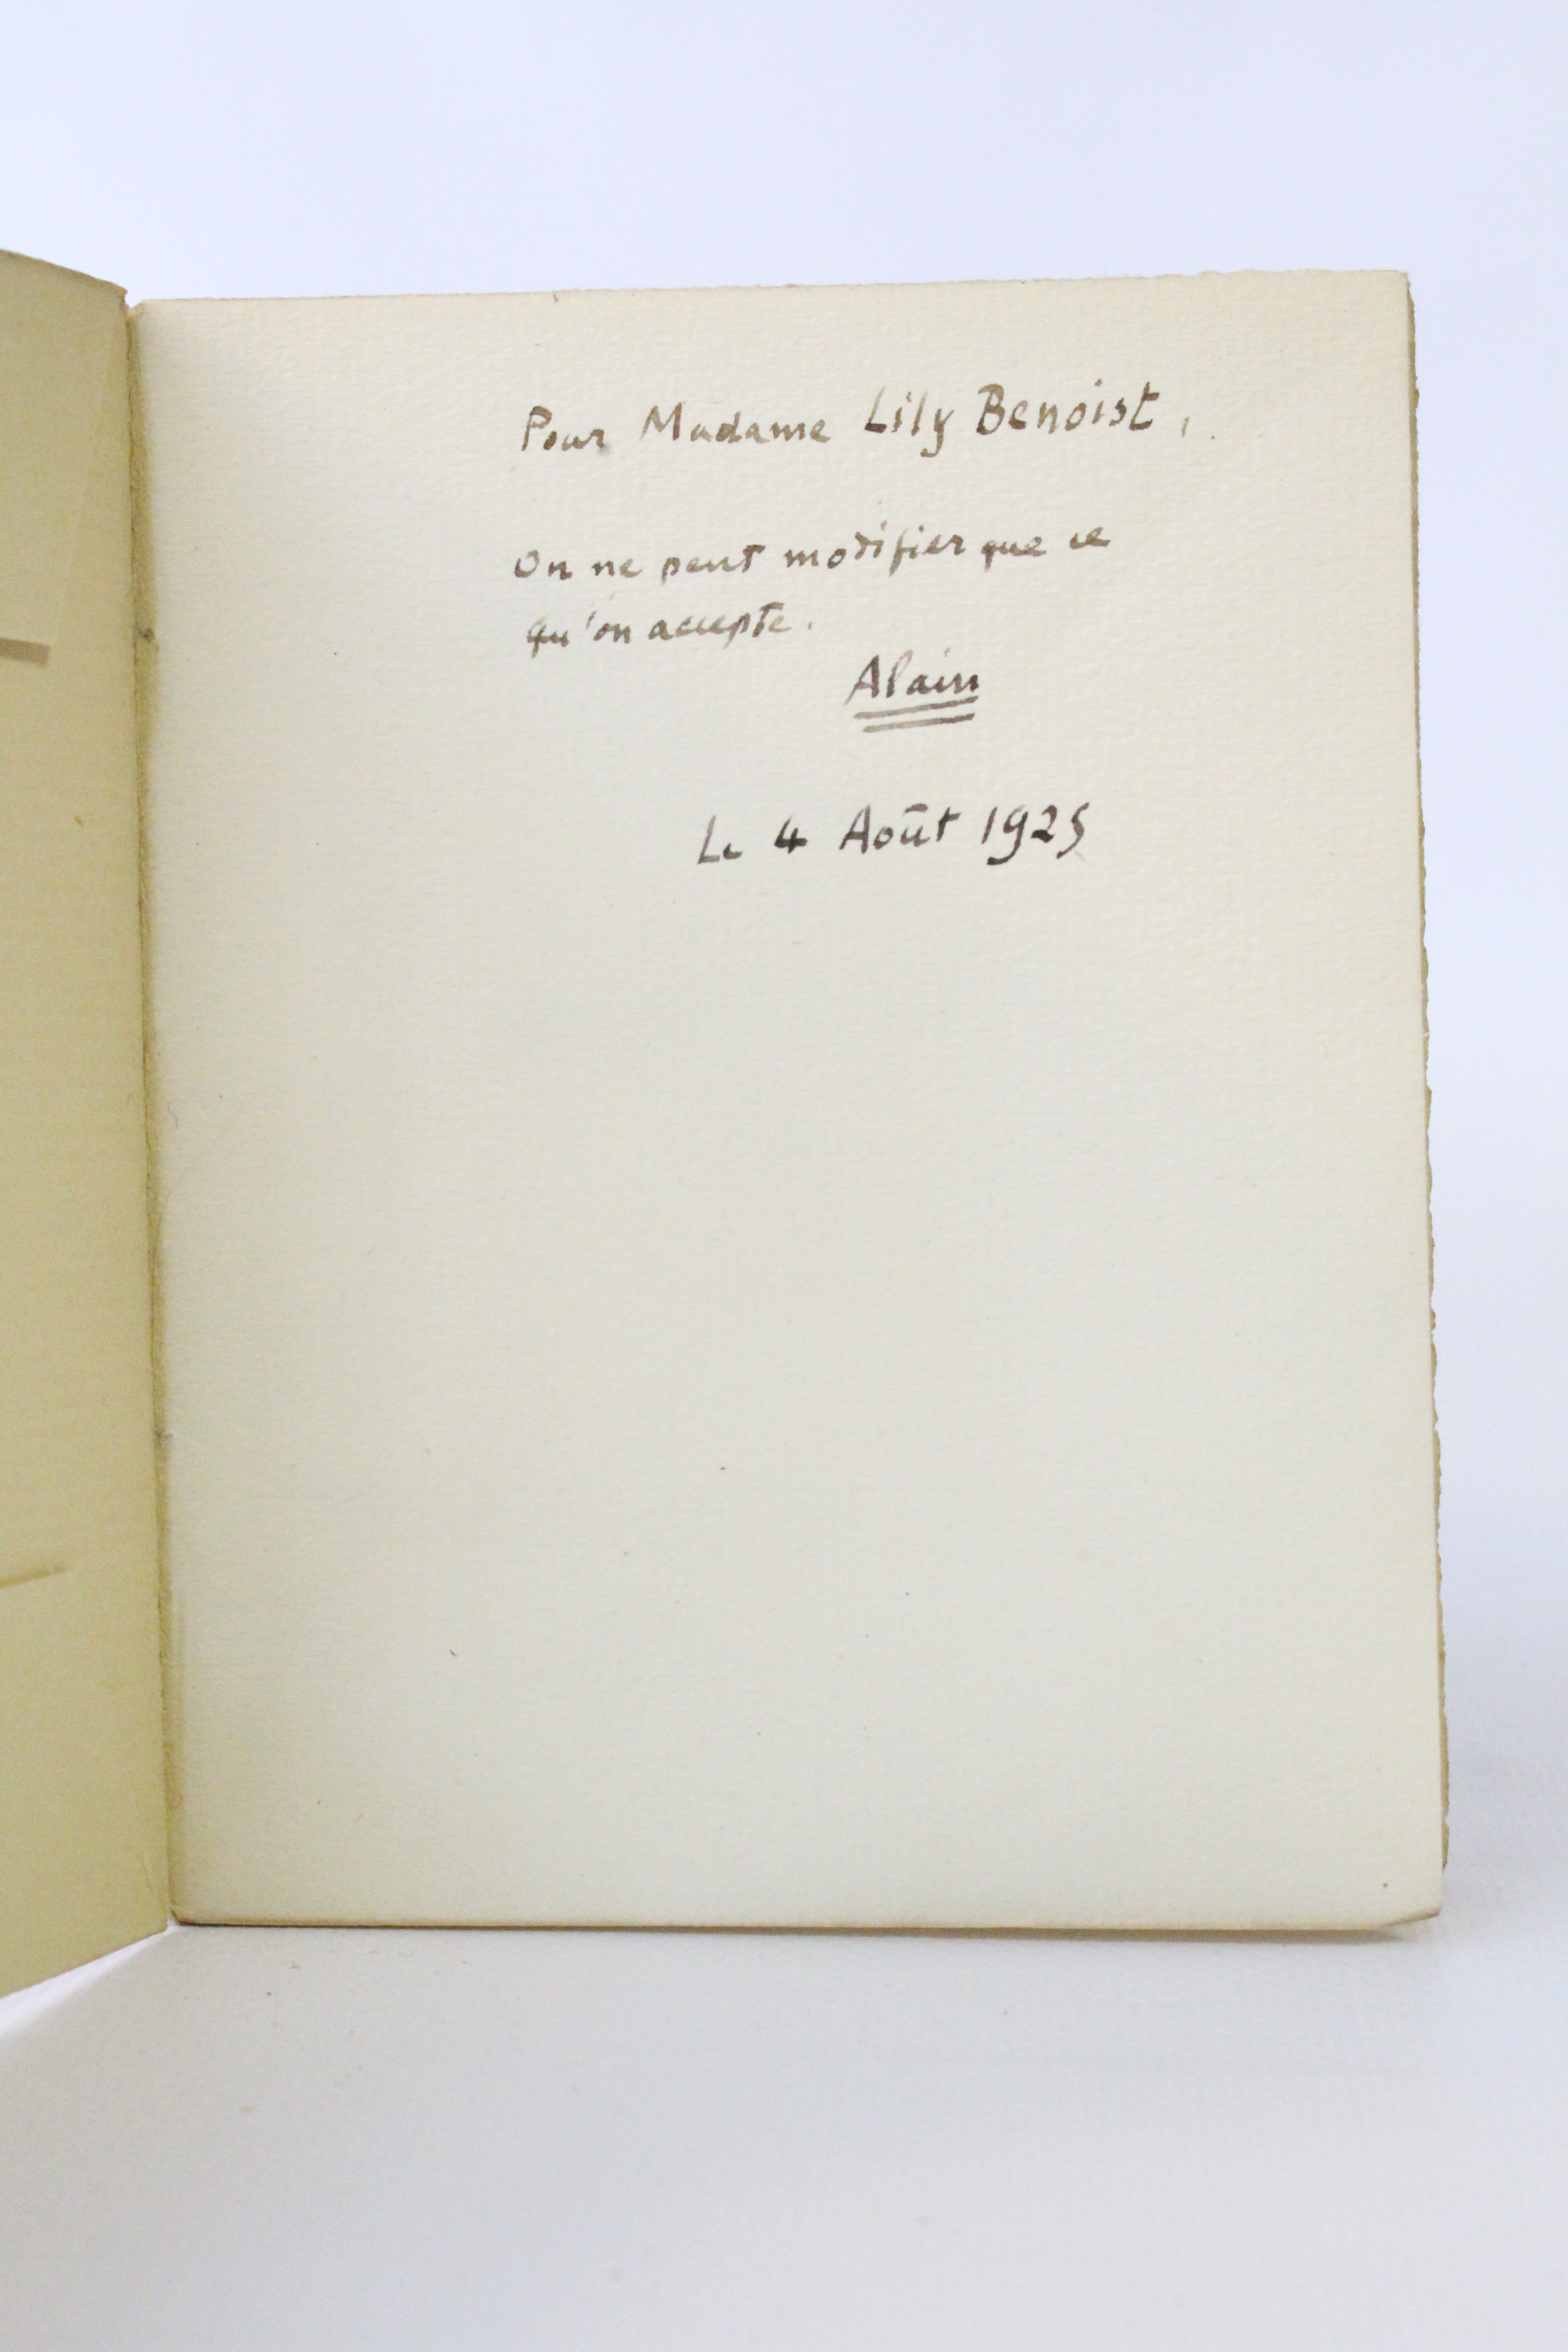 Pour Madame Lily Benoist,
On ne peut modifier que ce
qu'on accepte.
Alain
Le 4 Août 1925